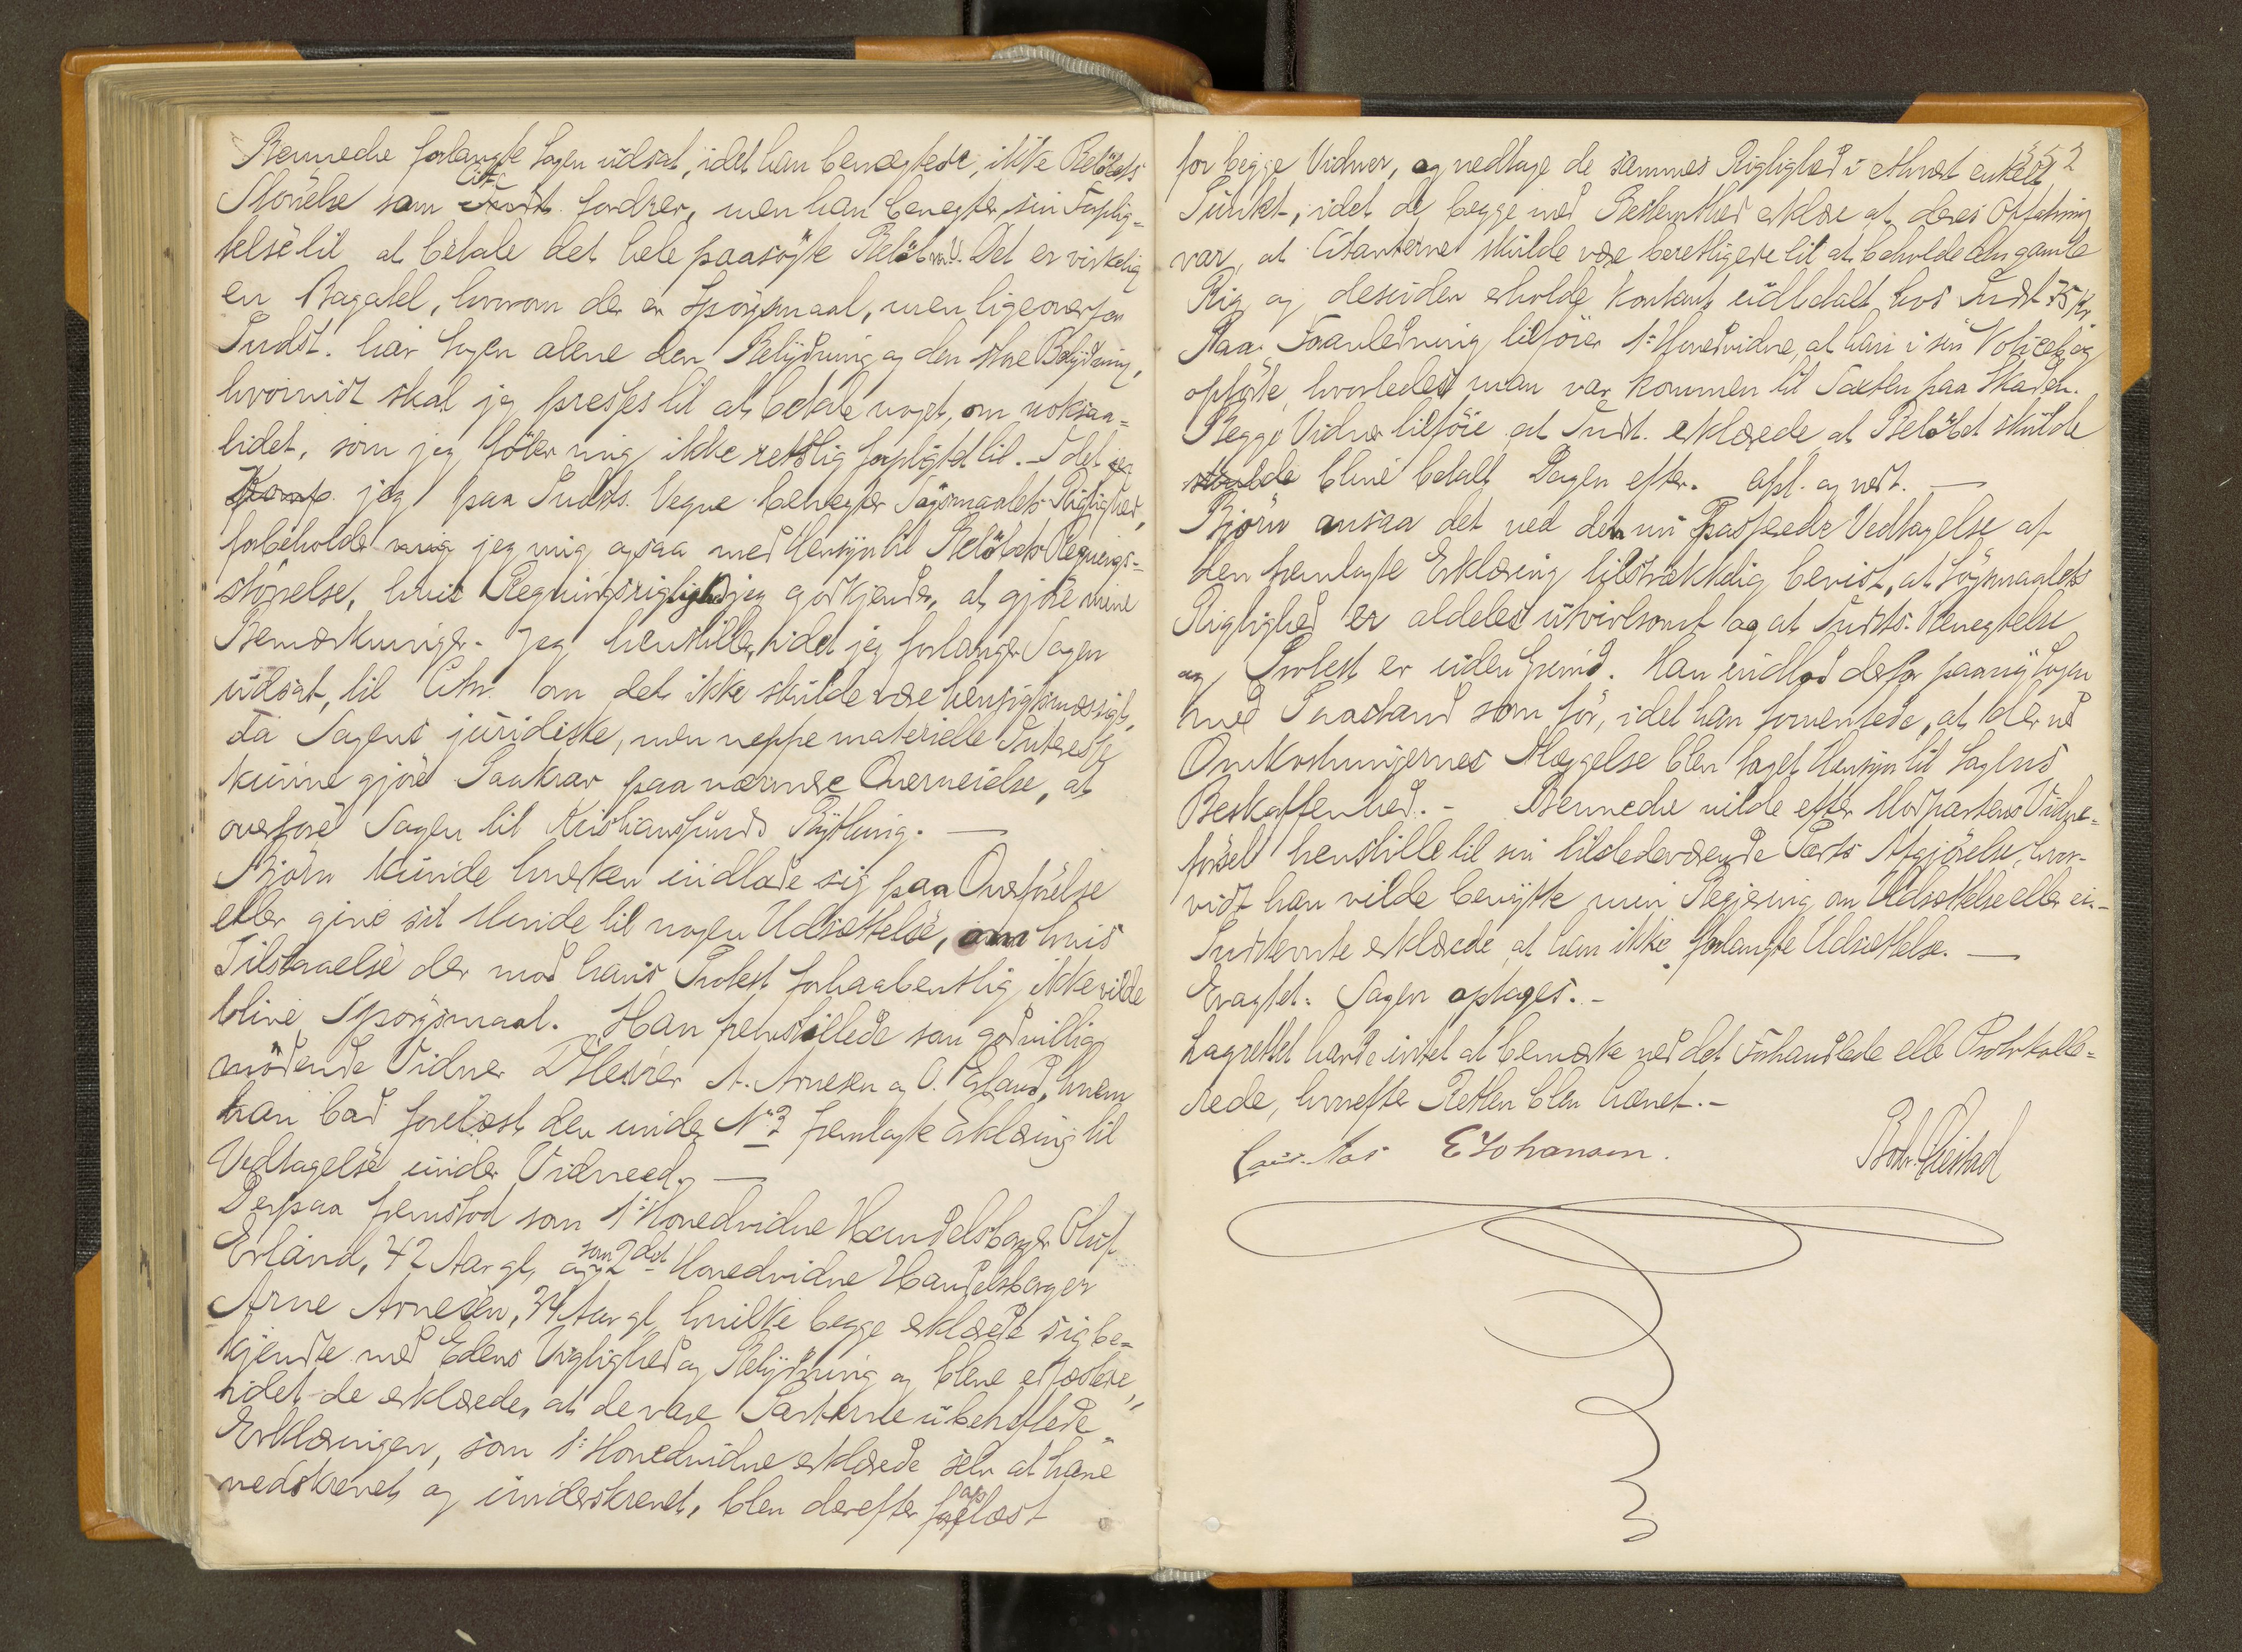 Benneche forlangte Sagen udsat, idet han benegtede, ikke Beløbets
Størrelse som Indst. Citr. fordrer, men han benegter sin Forplig=
telse til at betale det hele paasøgte Beløb. Det er virkelig
en Bagatel, hvorom der er Spørgsmaal, men ligeoverfor
Indst. har Sagen alene den Betydning og den store Betydning,
hvorvidt skal jeg presses til at betale noget, om noksaa=
lidet, som jeg føler mig ikke retslig forpligtet til. - Idet
Komp. jeg paa Indsts. Vegne benegter Søgsmaalets Rigtighed,
forbeholder jeg mig ogsaa med Hensyn til Beløbets Regnings=
størrelse, hvis Regningsrigtighed jeg godkjender, at gjøre mine
Bemærkninger. Jeg henstiller, idet jeg forlanger Sagen
udsat, til Citr. om det ikke skulde være hensigtsmæssigt,
da Sagens juridiske, men neppe materielle Interesse
kunne gjøre Paakrav paa nærmere Overveielse, at
overføre Sagen til Kristiansunds Bything. —
Bjørn kunde hverken indlade sig paa Overførelse
eller give sit Minde til nogen Udsættelse, om hvis
Tilstaaelse der mod hans Protest forhaabentlig ikke vilde
blive Spørgsmaal. Han fremstillede som godvillig
mødende Vidner DHerrer A. Arnesen og O. Erland, hvem
han bad forelæst den under No 2 fremlagte Erklæring til
Vedtagelse under Vidneed. —
Derpaa fremstod som 1ste Hovedvidne Handelsborger Oluf
Erland, 42 Aar gl, og som 2det Hovedvidne Handelsborger
Arne Arnesen, 34 Aar gl, hvilke begge erklærede sig be=
kjendte med Edens Vigtighed og Betydning og bleve edfæstede,
idet de erklærede, at de vare Parterne ubeheftede.
Erklæringen, som 1ste Hovedvidne erklærede selv at have
nedskrevet og underskrevet, blev derefter oplæst
for begge Vidner, og vedtage de sammes Rigtighed i ethvert enkelt
Punkt, idet de begge med Bestemthed erklære at deres Opfatning
var, at Citanterne skulde være berettigede til at beholde den gamle
Rig og desuden erholde kontant udbetalt hos Indst 75 Kr.
Paa Foranledning tilføier 1ste Hovedvidne, at han i sin Noticebog
opførte, hvorledes man var kommen til Taxten paa Skaden.
Begge Vidner tilføie at Indst. erklærede at Beløbet skulde
skulde blive betalt Dagen efter. Opl. og vedt. —
Bjørn ansaa det ved den nu passerede Vedtagelse af
den fremlagte Erklæring tilstrækkelig bevist, at Søgsmaalets
Rigtighed er aldeles utvivlsomt og at Indsts. Benegtelse
og Protest er uden Grund. Han indlod derfor paany Sagen
med Paastand som før, idet han forventede, at der ved
Omkostningernes Ilæggelse blev taget Hensyn til Sagens
Beskaffenhed. - Benneche vilde efter Modpartens Vidne=
førsel henstille til sin tilstedeværende Parts Afgjørelse, hvor-
vidt han vilde benytte min Begjæring om Udsættelse eller ei. -
Indstevnte erklærede at han ikke forlangte Udsættelse. —
Eragtet: Sagen optages. -
Lagrettet havde intet at bemærke ved det Forhandlede eller Protokolle=
rede, hvorefter Retten blev hævet. -
E Johansen.